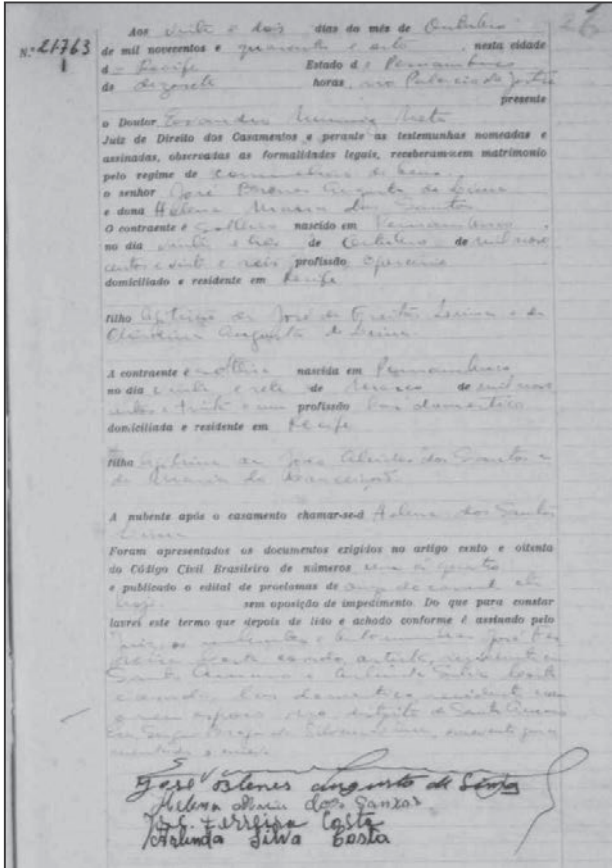 Nº 21763
1
Aos vinte e dois dias do mês de Outubro
de mil novecentos e quarenta e oito, nesta cidade
d o Recife Estado d e Pernambuco
às dezesete horas, no Palacio da Justiça
presente
o Doutor Evandro Neto
Juiz de Direito dos Casamentos e perante as testemunhas nomeadas e
assinadas, observadas as formalidades legais, receberam-se em matrimonio
pelo regime de comunhão de bens
o senhor José Augusto de Lima
e dona Helena Maria dos Santos
O contraente é solteiro nascido em Pernambuco,
no dia vinte e três de Outubro de mil nove
centos e vinte e seis profissão operario
domiciliado e residente em Recife
filho legitimo de José de Freitas Lima e de
Augusta de Lima
A contraente é solteira nascida em Pernambuco
no dia vinte e sete de Março de mil nove
centos e trinta e um profissão domestica
domiciliada e residente em Recife
filha legitima de José dos Santos e
de Maria da Conceição
A nubente após o casamento chamar-se-á Helena dos Santos
Lima
Foram apresentados os documentos exigidos no artigo cento e oitenta
do Código Civil Brasileiro de números um a quatro
e publicado o edital de proclamas de
hoje sem oposição de impedimento. Do que para constar
lavrei este termo que depois de lido e achado conforme é assinado pelo
juiz, os nubentes e testemunhas José
Ferreira Costa, casado, artista, residente em
Santo Amaro e Arlinda Silva Costa
casada, domestica residente com
o seu esposo no distrito de Santo Amaro
José augusto de Lima
Helena Maria dos Santos
José Ferreira Costa
Arlinda Silva Costa